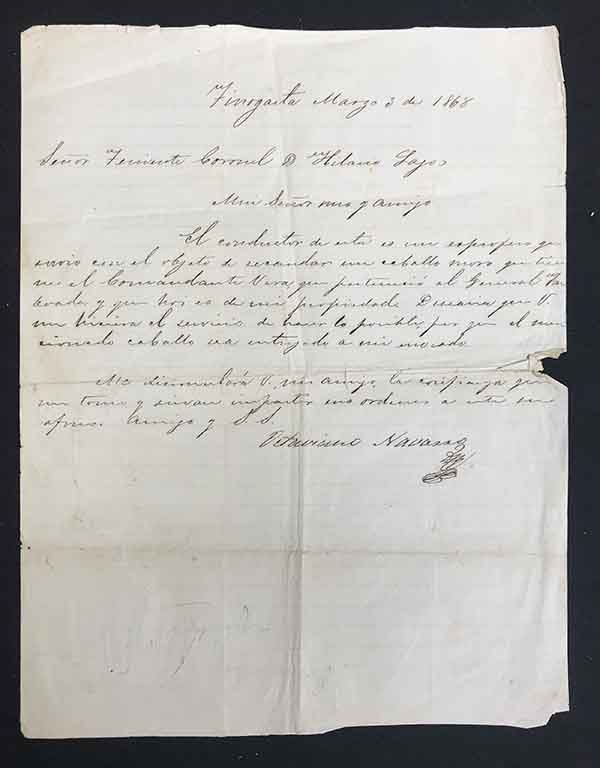 Tinogasta Marzo 3 de 1868
Señor Teniente Coronel D Hilario Lagos
Mui Señor mio y amigo
El conductor de esta es un espropio que
envio con el objeto de recaudar un caballo moro que tiene
ne el Comandante Vera, que pertenecio al General Ta
boada y que hoi es de mi propiedad. Desearia que V.
me hiciera el servicio de hacer lo posible por que el men
cionado caballo sea entregado a mi enviado.
Me disimulará V. mi amigo, la confianza que
me tomo y sirvase impartir sus ordenes a este su
afmo. Amigo y S. S.
Octaviano Navarro